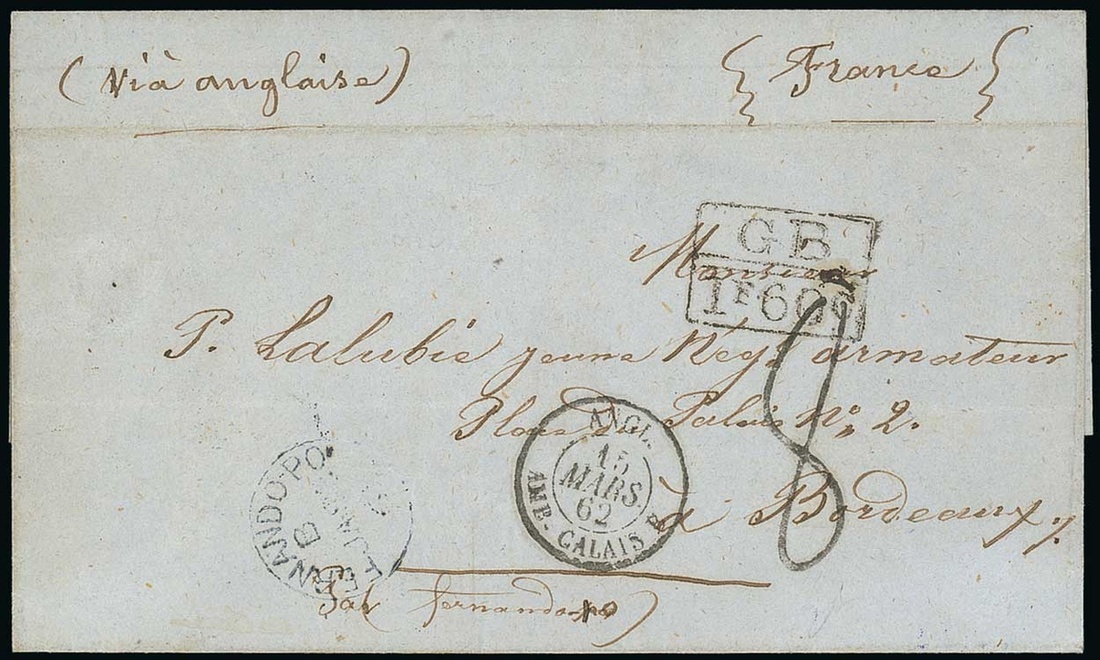 (via anglaise)
{France}
GB
1F60c
Monsieur
P. Lalubie jeune Négt armateur
Place du Palais No 2.
à Bordeaux
8
ANGL.
15
MARS
62
AMB-CALAIS
FERNANDO PO
(fernando-po)